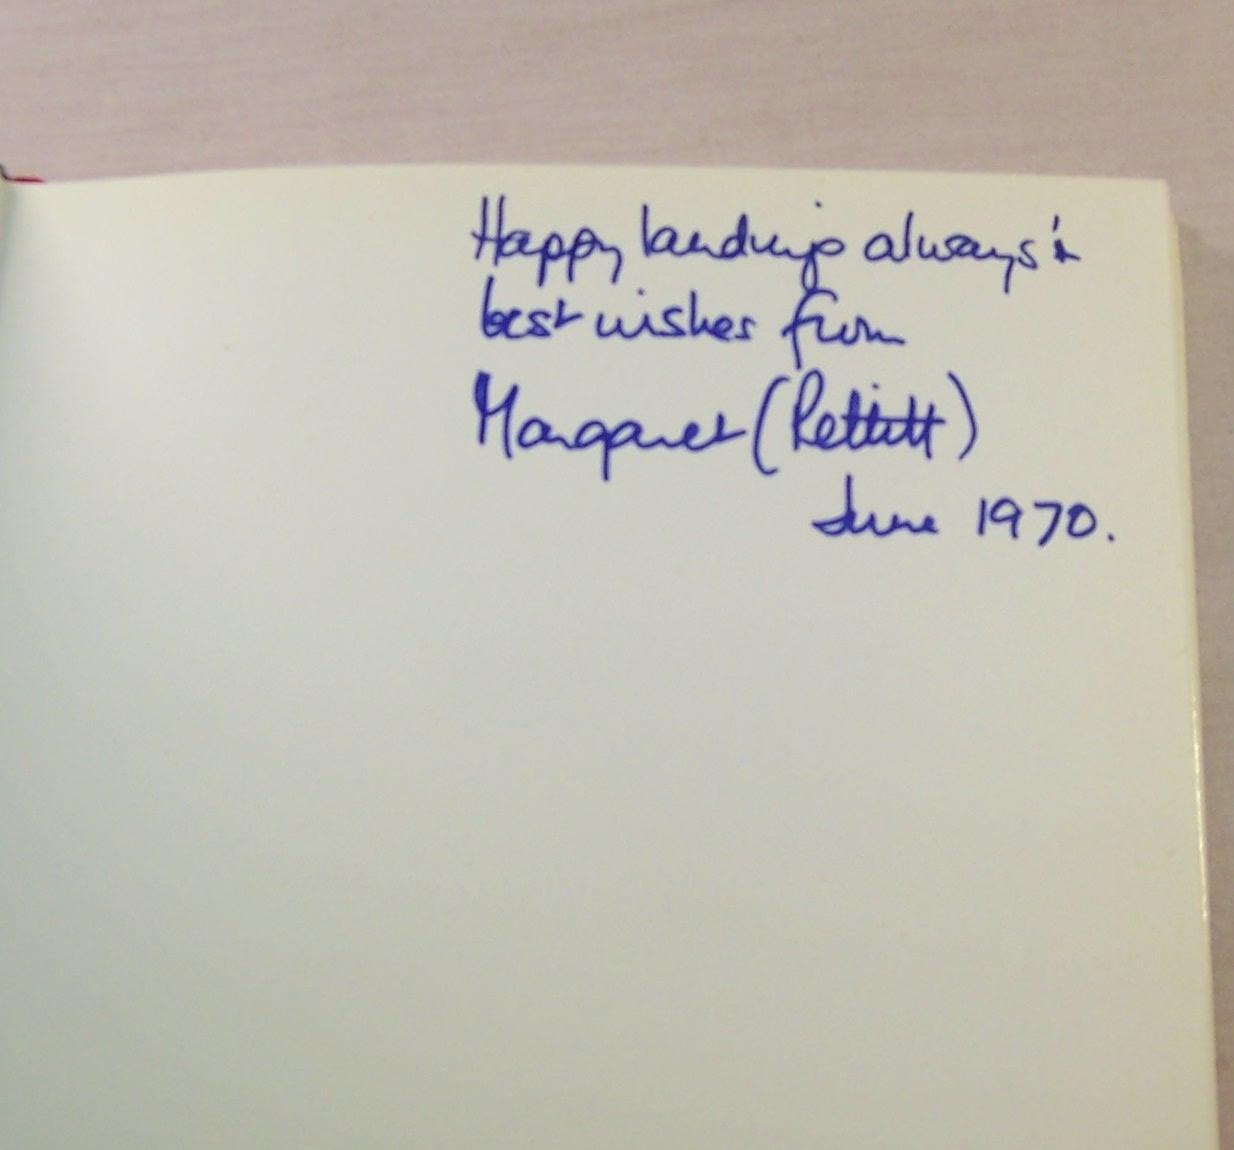 Happy landings always &
best wishes from
Margaret (Pettitt)
June 1970.